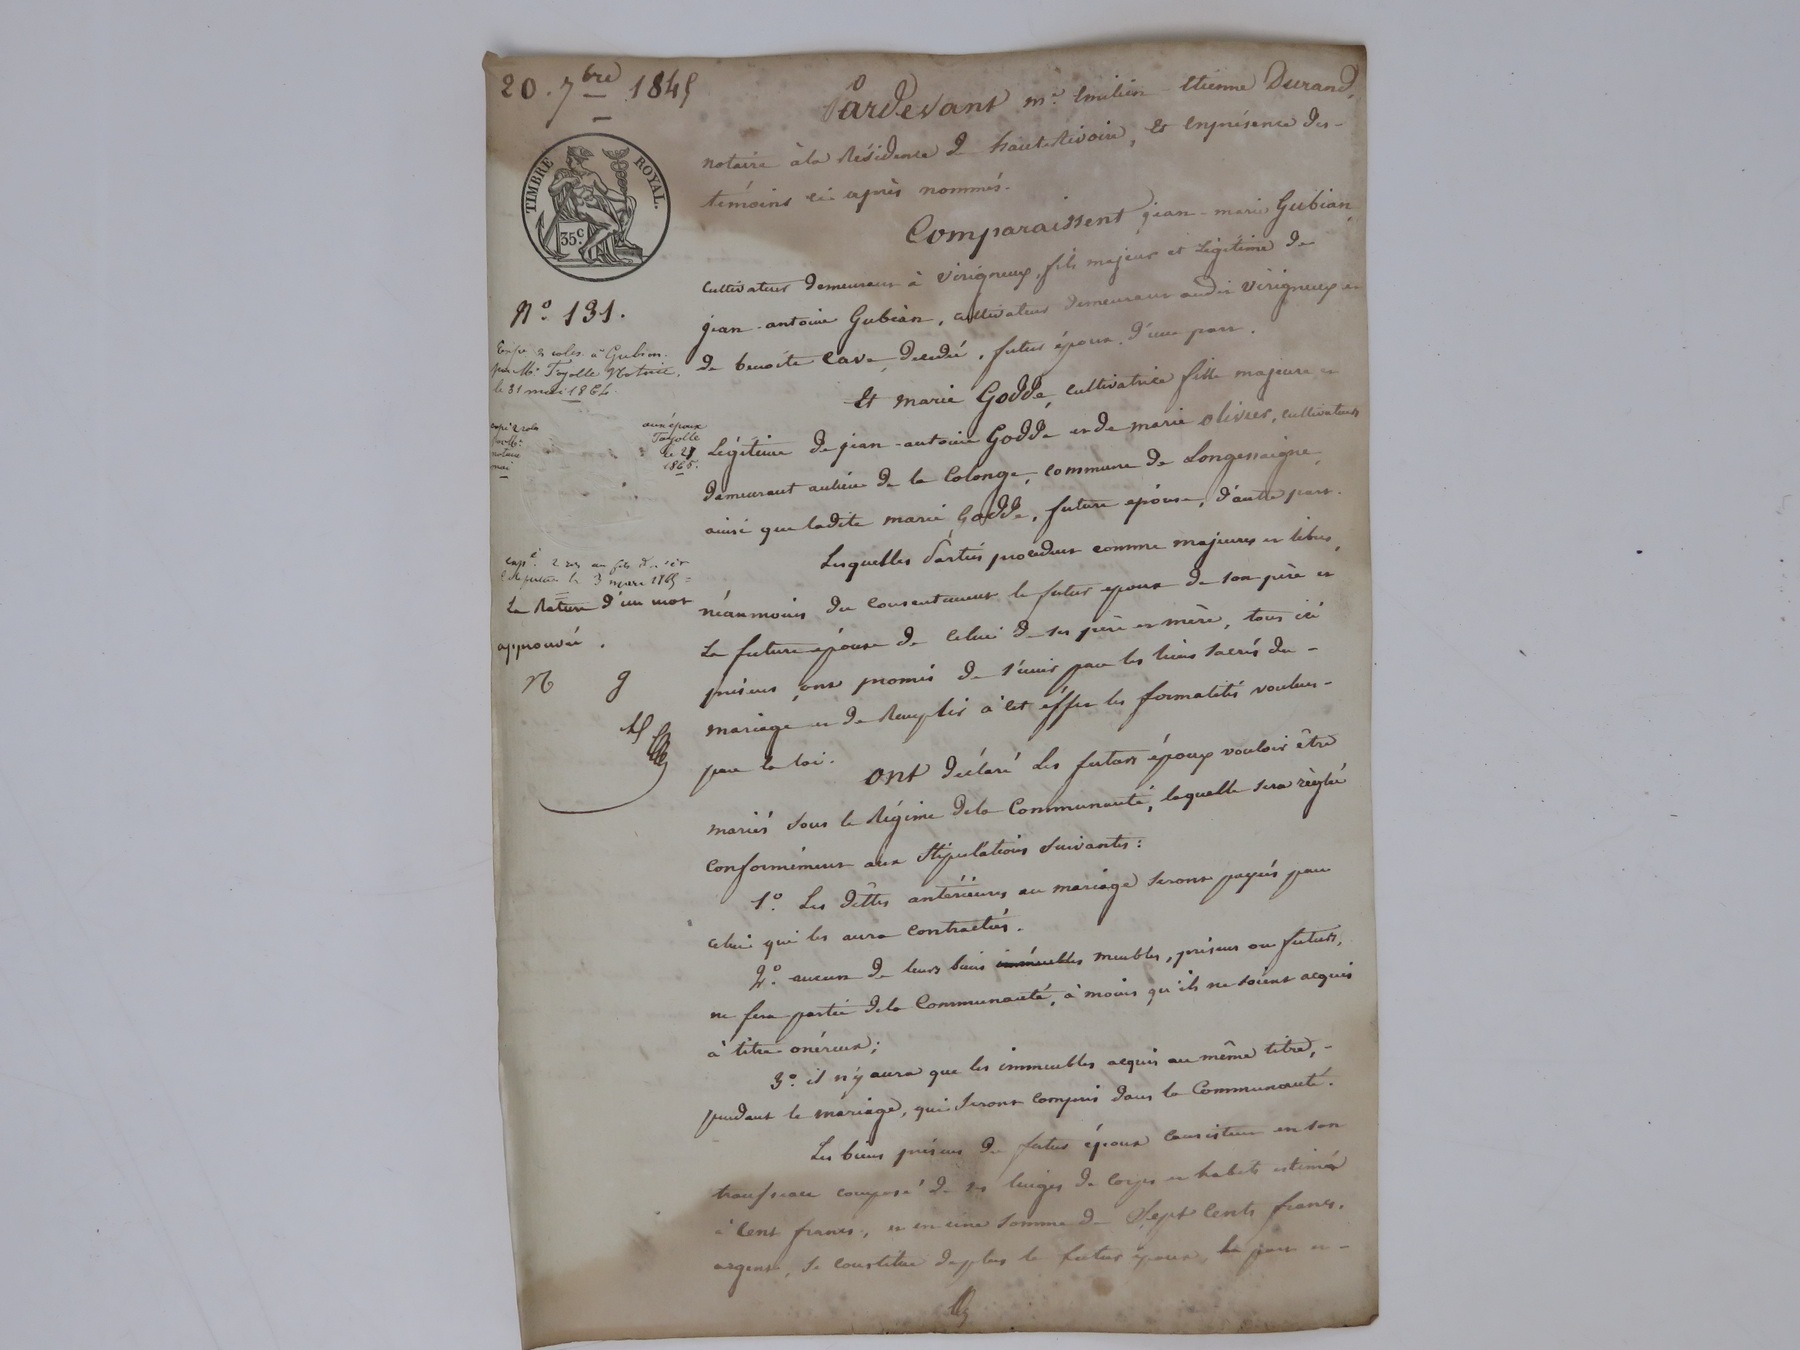 20. 7bre 1845
TIMBRE ROYAL.
35 c.
N.o 131.
le 31 mai 1864.
aux époux
Fayolle
1865.
La Rature d'un mot
approuvée.
Pardevant m.e Emilien Etienne Durand,
notaire à la Résidence de haute Rivoire, Et Enprésence des-
témoins ci après nommés.
Comparaissent jean-marie Gubian,
cultivateur demeurant à Virigneux, fils majeur et Légitime de
jean-antoine Gubian, cultivateur demeurant audit Virigneux et
de benoite Cave, décedée, futur époux d'une part.
Et marie Goddé, cultivatrice fille majeure et
Légitime de jean-antoine Goddé et de marie olivier, cultivateurs
demeurant aulieu de la Colonge, commune de Longessaigne,
ainsi que ladite marie Goddé, future épouse, d'autre part.
Lesquelles Parties procédent comme majeures et libres,
néanmoins du consentement le futur epoux de son père et
La future épouse de celui de ses père et mère, tous ici
présens, ont promis de s'unir par les liens sacrés du-
mariage et de Remplir à cet éffet les formalités voulues-
par la loi.
Ont déclaré Les futurs époux vouloir être
mariés sous le Régime dela Communauté, laquelle sera règlée
conformément aux Stipulations suivantes:
1.o Les dêttes antérieures au mariage seront payées par
celui qui les aura contractées.
2.o aucun de leurs biens immeubles meubles, présens ou futurs,
ne fera partie dela Communauté, à moins qu'ils ne soient acquis
à titre onéreux;
3.o il n'y aura que les immeubles acquis au même titre,-
pendant le mariage, qui seront compris dans la Communauté.
Les biens présens du futur époux consistent en son
trousseau composé de ses linges de corps et habits estimés
à Cent francs, et en une somme de Sept Cents francs,
argent, se constitue deplus le futur époux, la part et-